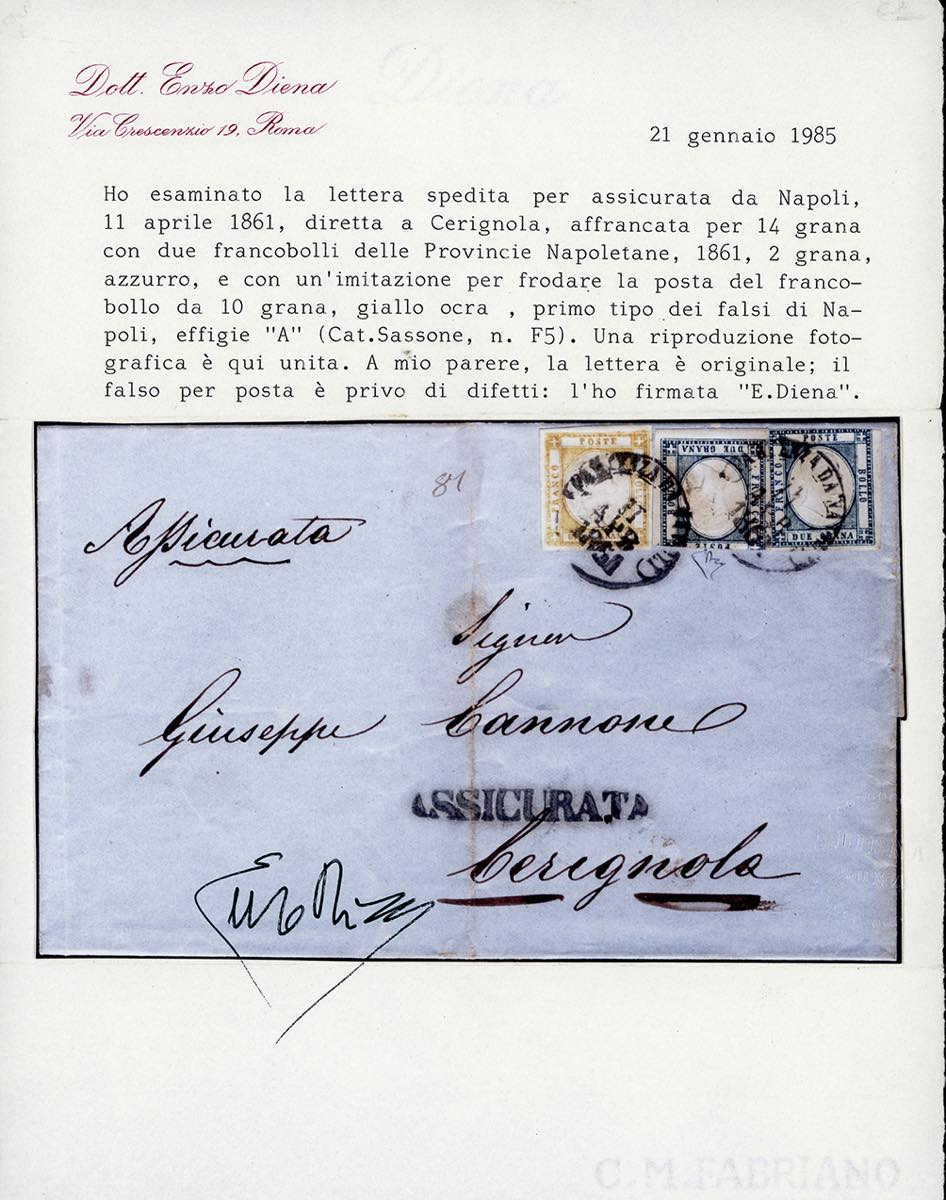 Dott. Enzo Diena
Via Crescenzio 19, Roma
Diena
21 gennaio 1985
Ho esaminato la lettera spedita per assicurata da Napoli,
11 aprile 1861, diretta a Cerignola, affrancata per 14 grana
con due francobolli delle Provincie Napoletane, 1861, 2 grana,
azzurro, e con un'imitazione per frodare la posta del franco-
bollo da 10 grana, giallo ocra , primo tipo dei falsi di Na-
poli, effigie "A" (Cat.Sassone, n. F5). Una riproduzione foto-
grafica è qui unita. A mio parere, la lettera è originale; il
falso per posta è privo di difetti: l'ho firmata "E.Diena".
POSTE
FRANCO
DUE GRANA
FRANCO
BOLLO
POSTE
POSTE
FRANCO
BOLLO
DUE GRANA
11
APR
81
Assicurata
Signor
Giuseppe Cannone
ASSICURATA
Cerignola
C.M.FABRIANO